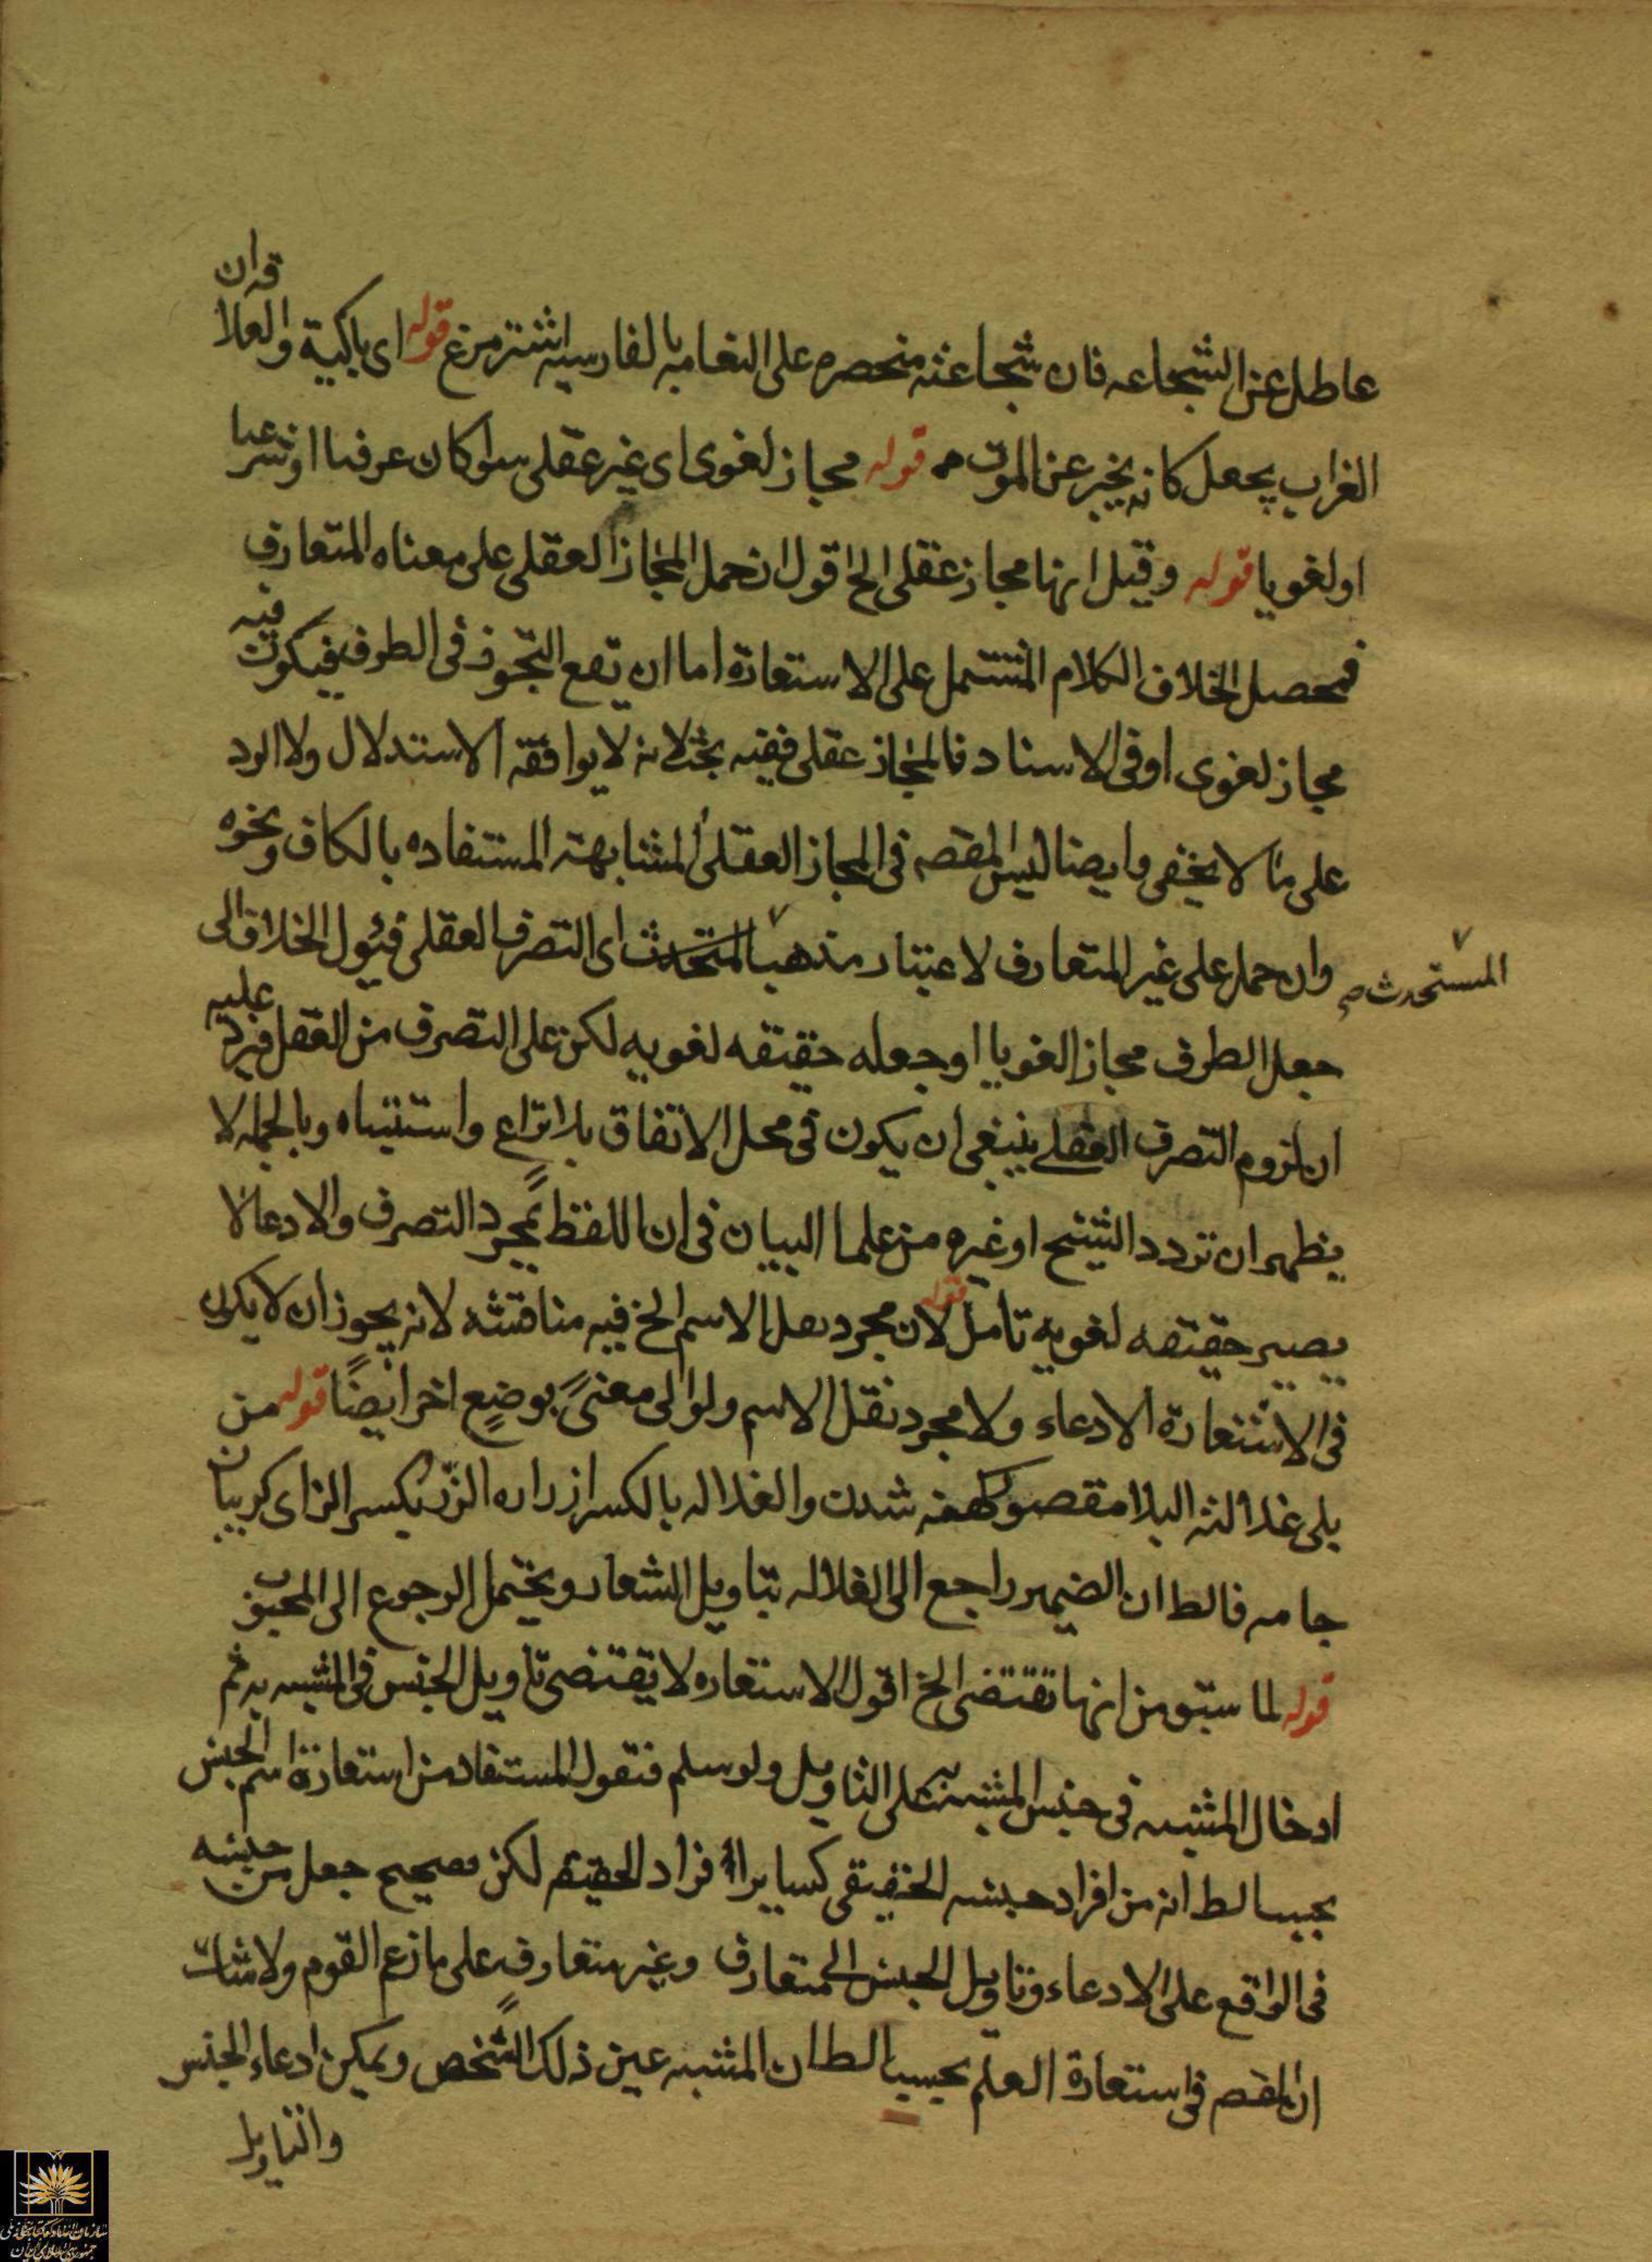 عاطل عن الشجاعه فان شجاعته منحصره على النعامه بالفارسيه اشتر مرغ قوله اى باكية والعلاقه ان
الغراب يجعل كانه يخبر عن الموت قوله مجاز لغوى اى غير عقلى سوا كان عرفيا او شرعيا
او لغويا قوله وقيل انها مجاز عقلى الخ اقول ان حمل المجاز العقلى على معناه المتعارف
فمحصل الخلاف الكلام المشتمل على الاستعارة اما ان يقع التجوز فى الطرف فيكون فيه
مجاز لغوى او فى الاسناد فالمجاز عقلى ففيه بحث لانه لا يوافقه الاستدلال ولا الرد
على ما لا يخفى وايضا ليس المقصه فى المجاز العقلى المشابهة المستفاده بالكاف ونحوه
وان حمل على غير المتعارف لاعتبار مذهبا المتحدث اى التصرف العقلى فيئول الخلاف الى
المستحدث صح
جعل الطرف مجازا لغويا او جعله حقيقه لغويه لكن على التصرف من العقل فيرد عليه
ان لزوم التصرف العقلى ينبغى ان يكون فى محل الاتفاق بلا نزاع واشتباه وبالجمله لا
يظهر ان تردد الشيخ او غيره من علما البيان فى ان اللفظ بمجرد التصرف والادعا لا
يصير حقيقه لغوية تامل قوله لان مجرد نقل الاسم الخ فيه مناقشه لانه يجوز ان لا يكون
فى الاستعارة الادعاء ولا مجرد نقل الاسم ولو الى معنىً بوضعٍ اخر ايضًا قوله من
بلى غلالته البلا مقصور كهنه شدن والغلاله بالكسر ازراره الزر بكسر الزاى كريبان
جامه فالظ ان الضمير راجع الى الغلاله بتاويل الشعار ويحتمل الرجوع الى المحبوب
قوله لما سبق من انها تقتضى الخ اقول الاستعاره لا يقتضى تاويل الجنس فى المشبه به ثم
ادخال المشبه فى جنس المشبه به على التاويل ولو سلم فنقول المستفاد من استعارة اسم الجنس
بحسب الظ انه من افراد جنسه الحقيقى كساير افراد الحقيقه لكن مصحح جعل من جنسه
فى الواقع على الادعاء وتاويل الجنس الى متعارف وغير متعارف على ما زعم القوم ولا شك
ان المقصه فى استعارة العلم بحسب الظ ان المشبه عين ذلك الشخص ويمكن ادعاء الجنس
والتاويل